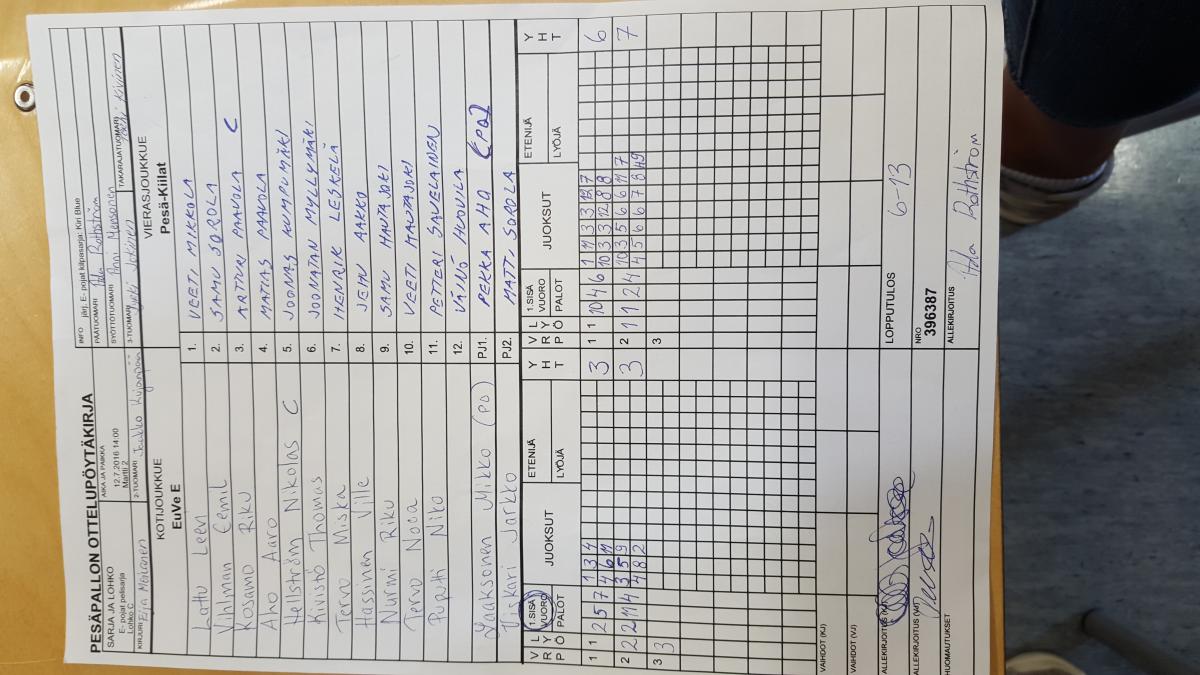 PESÄPALLON OTTELUPÖYTÄKIRJA
SARJA JA LOHKO
E- pojat pelisarja
Lohko C
AIKA JA PAIKKA
12.7.2016 14:00
Martti 2
INFO järj. E- pojat kilpasarja: Kiri Blue
PÄÄTUOMARI Ada Rothström
SYÖTTÖTUOMARI Anni Mensonen
KIRJURI Eija Moilanen
2-TUOMARI Jaakko Kujanpää
3-TUOMARI Jyrki Jokinen
TAKARAJATUOMARI Toni Kivinen
KOTIJOUKKUE
EuVe E
VIERASJOUKKUE
Pesä-Kiilat
Lattu Leevi 1. VEETI MIKKOLA
Vihlman Eemil 2. SAMU SOROLA
Rosamo Riku 3. ARTTURI PAAVOLA C
Aho Aaro 4. MATIAS PAAVOLA
Hellström Nikolas C 5. JOONAS KUMPUMÄKI
Kivistö Thomas 6. JOONATAN MYLLYMÄKI
Tervo Miska 7. HENRIK LESKELÄ
Hassinen Ville 8. JEMU AAKKO
Nurmi Riku 9. SAMU HAUTAJOKI
Tervo Nooa 10. VEETI HAUTAJOKI
Puputti Niko 11. PETTERI SAVELAINEN
12. VÄINÖ HUOVILA
Laaksonen Mikko (PD) PJ1. PEKKA AHO (PD)
Yiskari Jarkko PJ2. MATTI SOROLA
V R P L Y Ö 1.SISÄ VUORO PALOT JUOKSUT ETENIJÄ LYÖJÄ Y H T
V R P L Y Ö 1.SISÄ VUORO PALOT JUOKSUT ETENIJÄ LYÖJÄ Y H T
1 1 2 5 7 1 3 4 3
4 6 11
1 1 10 4 6 1 11 3 3 12 7 6
10 3 3 12 8 8
2 2 2 11 4 3 5 9 3
4 8 2
2 1 1 2 4 10 3 5 6 6 11 7 7
4 5 6 6 7 8 4 9
3 3
3
VAIHDOT (KJ)
VAIHDOT (VJ)
ALLEKIRJOITUS (KJ)
LOPPUTULOS 6-13
ALLEKIRJOITUS (VJ)
NRO
396387
HUOMAUTUKSET
ALLEKIRJOITUS
Ada Rothström